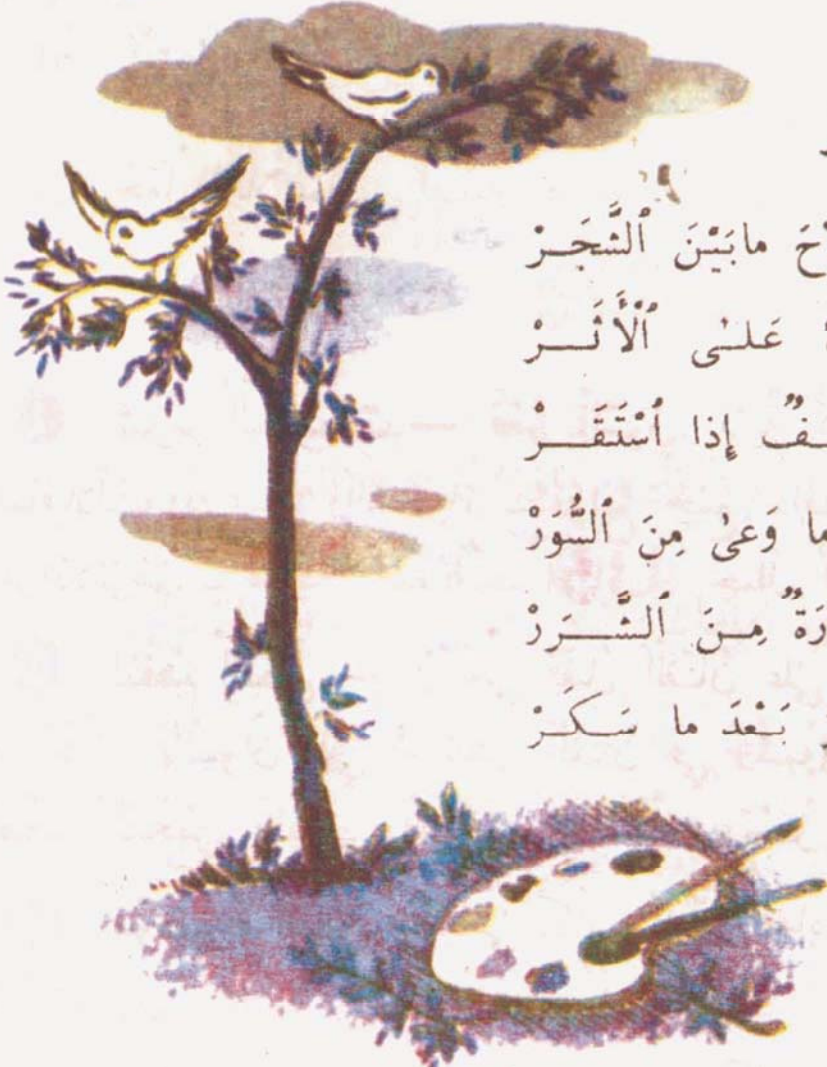 مابَيْنَ ٱلشَّجَرْ
عَلىٰ ٱلْأَثَرْ
إِذا ٱسْتَقَرْ
ما وَعىٰ مِنَ ٱلسُّوَرْ
مِنَ ٱلشَّرَرْ
بَعْدَ ما سَكَرْ